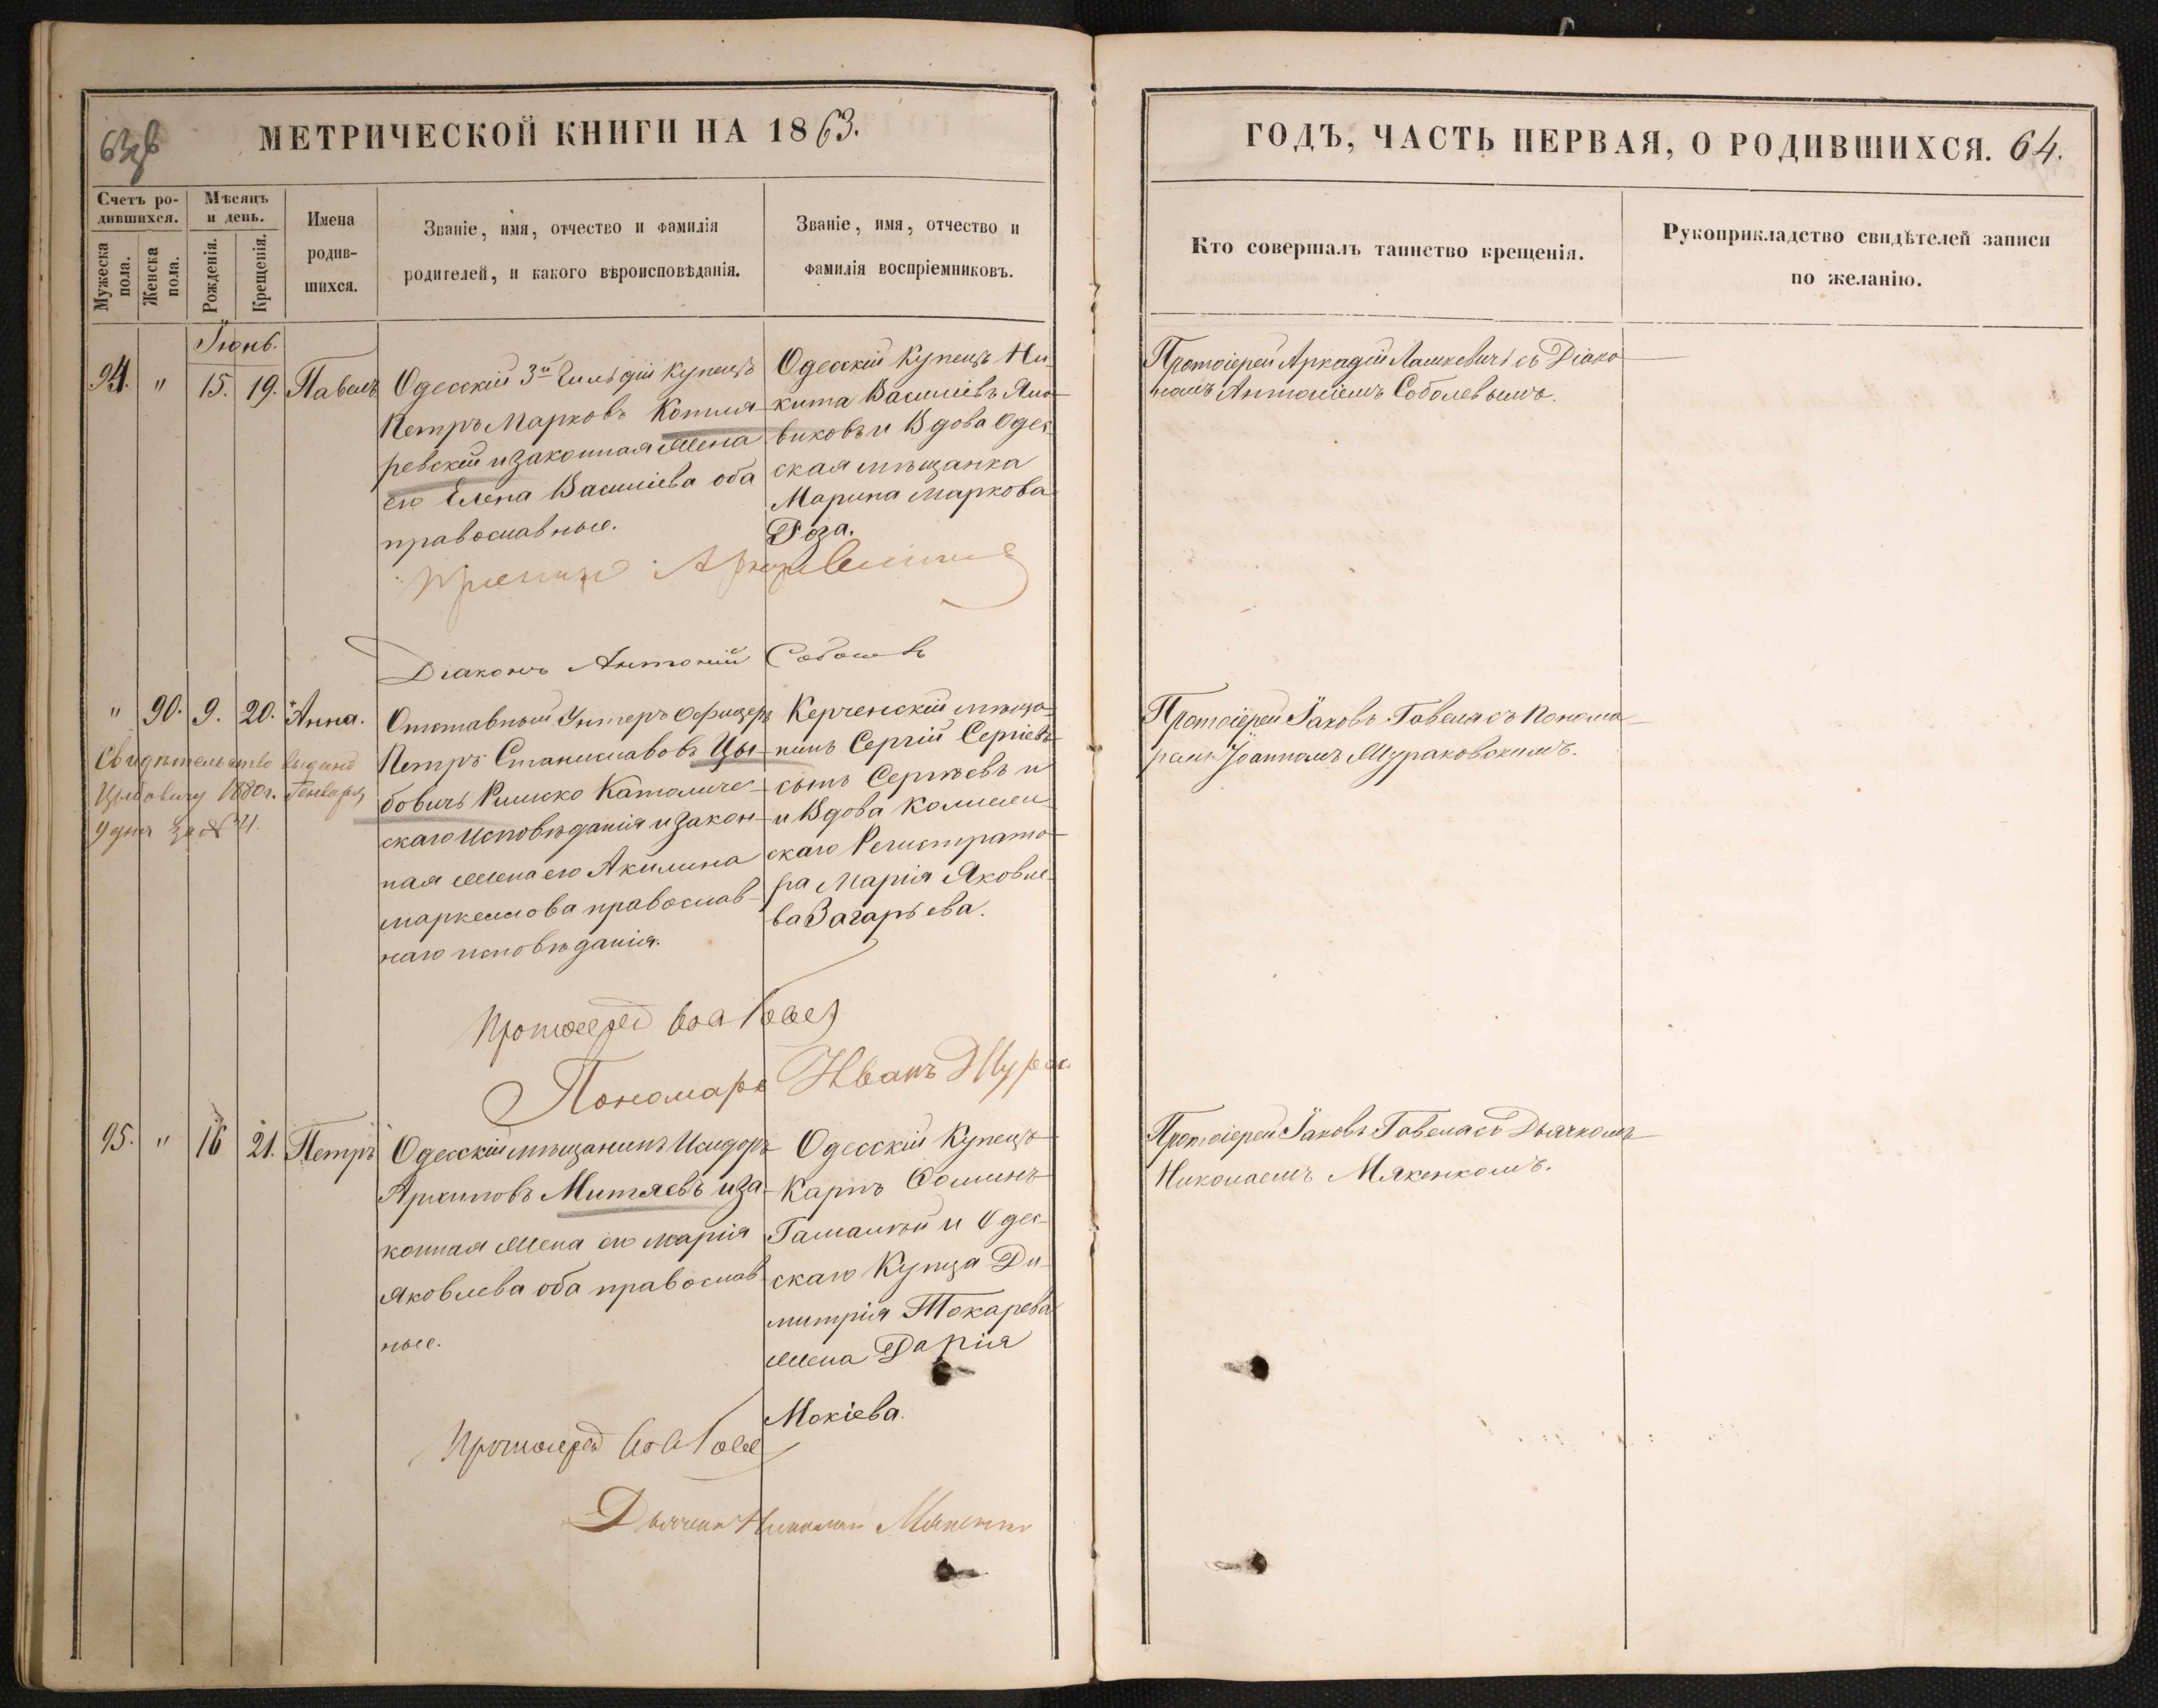 МЕТРИЧЕСКОЙ КНИГИ НА 1863.
Счетъ ро-
дившихся.
Мѣсяцъ
и день.
Мужеска
пола.
Женска
пола.
Рожденія.
Крещенія.
Имена
родив-
шихся.
Званіе, имя, отчество и фамилія
родителей, и какого вѣроисповѣданія.
Званіе, имя, отчество и
фамилія воспріемниковъ.
Іюнь.
94. " 15. 19. Павелъ
Одесскій 3й Гильдіи Купецъ
Петръ Марковъ Котля-
ревскій и законная жена
его Елена Василіева оба
православные.
Одесскій Купецъ Ни-
кита Василіевъ
виковъ и Вдова Одес-
ская мѣщанка
Марина Маркова
Роза.
Діаконъ Антоній Соболевъ
" 90. 9. 20. Анна.
Свидѣтельство выдано
Цыбовичу 1880г. Генваря
9 дня за № 4.
Отставный Унтеръ Офицеръ
Петръ Станиславовъ Цы-
бовичъ Римско Католиче-
скаго Исповѣданія и закон-
ная жена его Акилина
Маркеллова православ-
наго исповѣданія.
Керченскій мѣща-
нинъ Сергій Сергіевъ
сынъ Сергѣевъ и
и Вдова Коллеж-
скаго Регистрато-
ра Марія Яковле-
ва Загарьева.
Протоіерей
Пономарь Иванъ
95. " 16 21. Петръ
Одесскій мѣщанинъ Исидоръ
Архиповъ Митяевъ и за-
конная жена его Марія
Яковлева оба православ-
ные.
Одесскій Купецъ
Карпъ Фоминъ
Гамалѣй и Одес-
скаго Купца Ди-
митрія Токарева
жена Дарія
Мокіева.
Протоіерей
Дьячекъ Николай Мякенко
ГОДЪ, ЧАСТЬ ПЕРВАЯ, О РОДИВШИХСЯ. 64.
Кто совершалъ таинство крещенія.
Рукоприкладство свидѣтелей записи
по желанію.
Протоіерей Аркадій Лашкевичъ съ Діако-
номъ Антоніемъ Соболевымъ.
Протоіерей Іаковъ Гавела съ Понома-
ремъ Іоанномъ Мураковскимъ.
Протоіерей Іаковъ Гавела съ Дьячкомъ
Николаемъ Мякенкомъ.